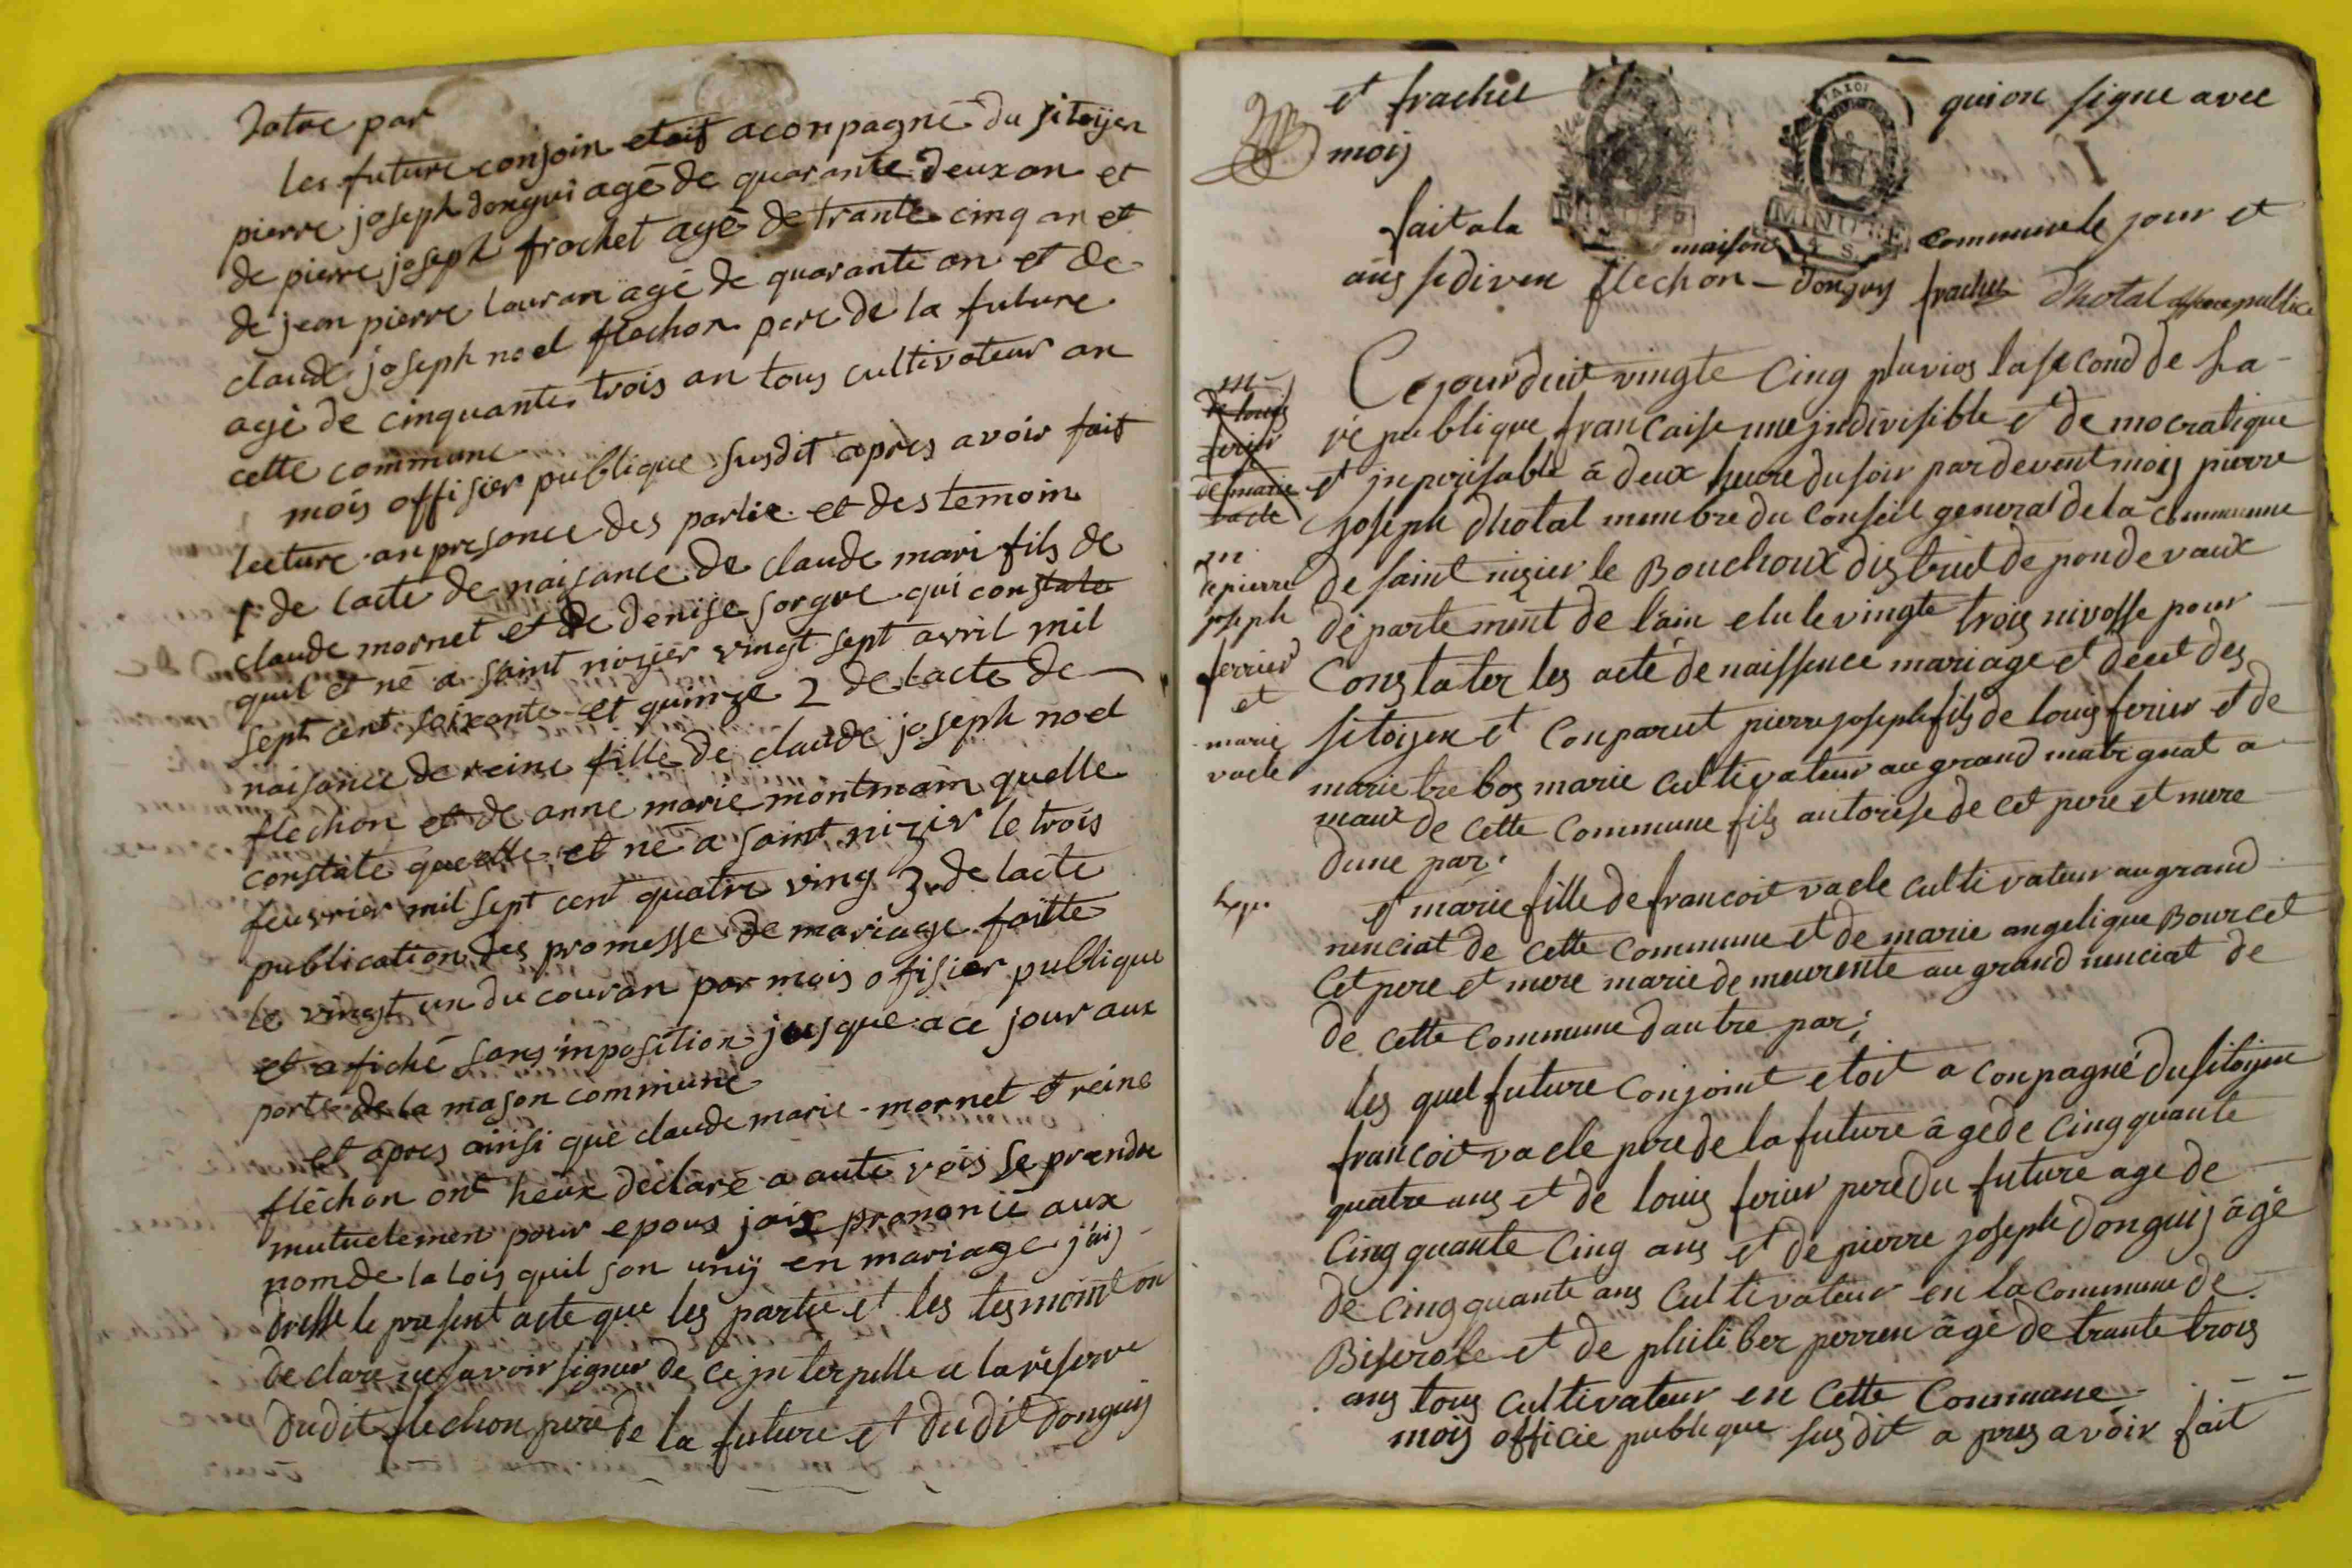 dotre par
les future conjoin etoit aconpagné du sitoijen
pierre joseph dongui agé de quarante deux an et
de pierre joseph frachet agé de trante cinq an et
de jean pierre lauran agé de quarante an et de
claude joseph noel flechon pere de la future
agé de cinquante trois an tous cultivateur an
cette commune
mois offisier publique susdit apres avoir fait
lecture an presance des partie et des temoin
1 de lacte de naisance de claude mari fils de
claude mornet et de denise sorgue qui constate
quil et né a saint nizier vingt sept avril mil
sept cent soixante et quinze 2 de lacte de
naisance de reine fille de claude joseph noel
flechon et de anne marie montmain quelle
constate quelle et né a saint nizier le trois
feuvrier mil sept cent quatre ving 3 de lacte
publication des promesse de mariage faitte
le vingt un du couran par mois ofisier publique
et afiché sans inposition jusque a ce jour aux
porte de la mason commune
et apres ainsi que claude marie mornet et reine
flechon ont heux déclaré a aute vois se prendre
mutuelemen pour epoux jaix prononcé aux
nom de la lois quil son unij en mariage j'aij
dresse le present acte que les partie et les tesmoint on
declare ne savoir signer de ce interpelle a la réserve
dudit flechon pere de la future et du dit donguij
et frachet quion signe avec
mois
MINUTE
MINUTE
fait a la maison commune le jour et
ans sediven flechon - donguy frachet Dhotal officier public
Cejourduit vingte cinq pluvios la second de la
re publique francaise une jndivisible et democratique
et jnperisable â deux heure du soir pardevent mois pierre
joseph dhotal menbre du conseil general de la commune
de saint nizier le Bouchoux district de pondevaux
departement de lain elu le vingte trois nivosse pour
Constater les acté de naissence mariage et decet des
sitoijen et Conparut pierre joseph fils de louis ferier et de
marie trebos marie cultivateur au grand matrignat a
maux de cette commune fils autorise de cet pere et mere
dune par.
et marie fille de francoit vacle cultivateur au grand
nenciat de cette commune et de marie angelique Bourcet
cet pere et mere marie demeurente au grand nenciat de
de cette commune dautre par;
les quel future conjoint etoit a conpagné du sitoijen
francoit vacle pere de la future âgé de cinqquante
quatre ans et de louis ferier pere du future age de
cinqquante cinq ans et de pierre joseph donguij âgé
de cinqquante ans cultivateur en la commune de
Biserole et de philiber perren âgé de trante trois
ans tous cultivateur en cette commune
mois officié publique susdit a pres avoir fait
m
de louis
ferier
de marie
vacle
m
de pierre
joseph
ferrier
et
marie
vacle